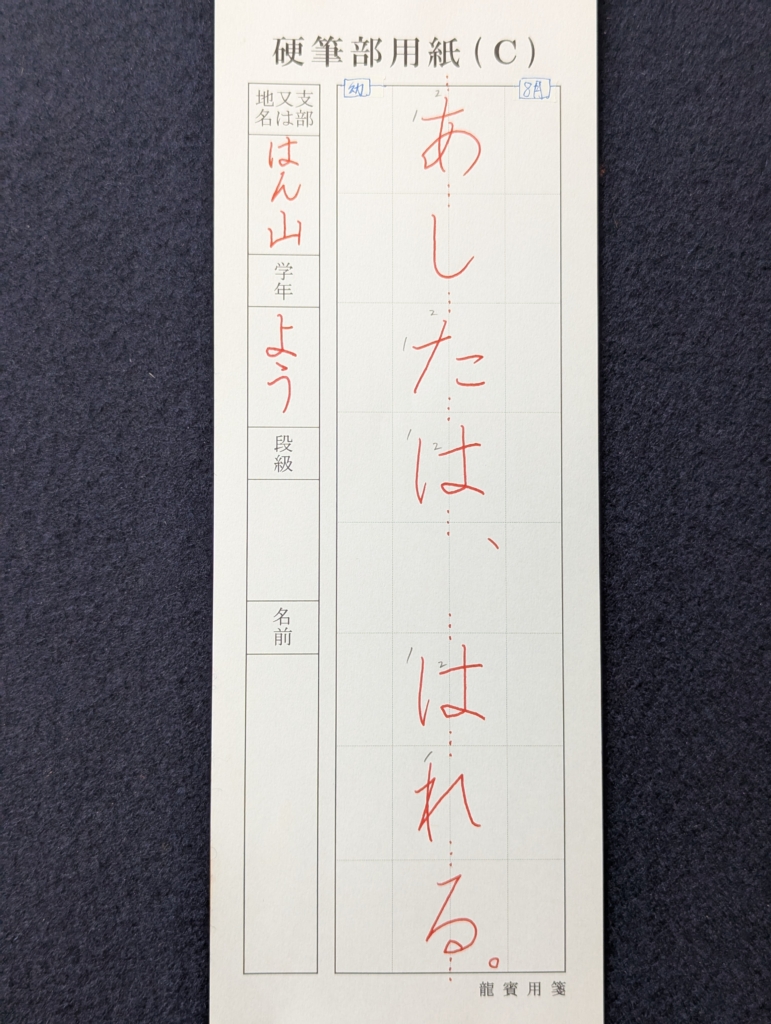 硬筆部用紙(C)
8月
幼
あしたは、はれる。
支部
又は
地名
はん山
学年
よう
段級
名前
龍賓用箋